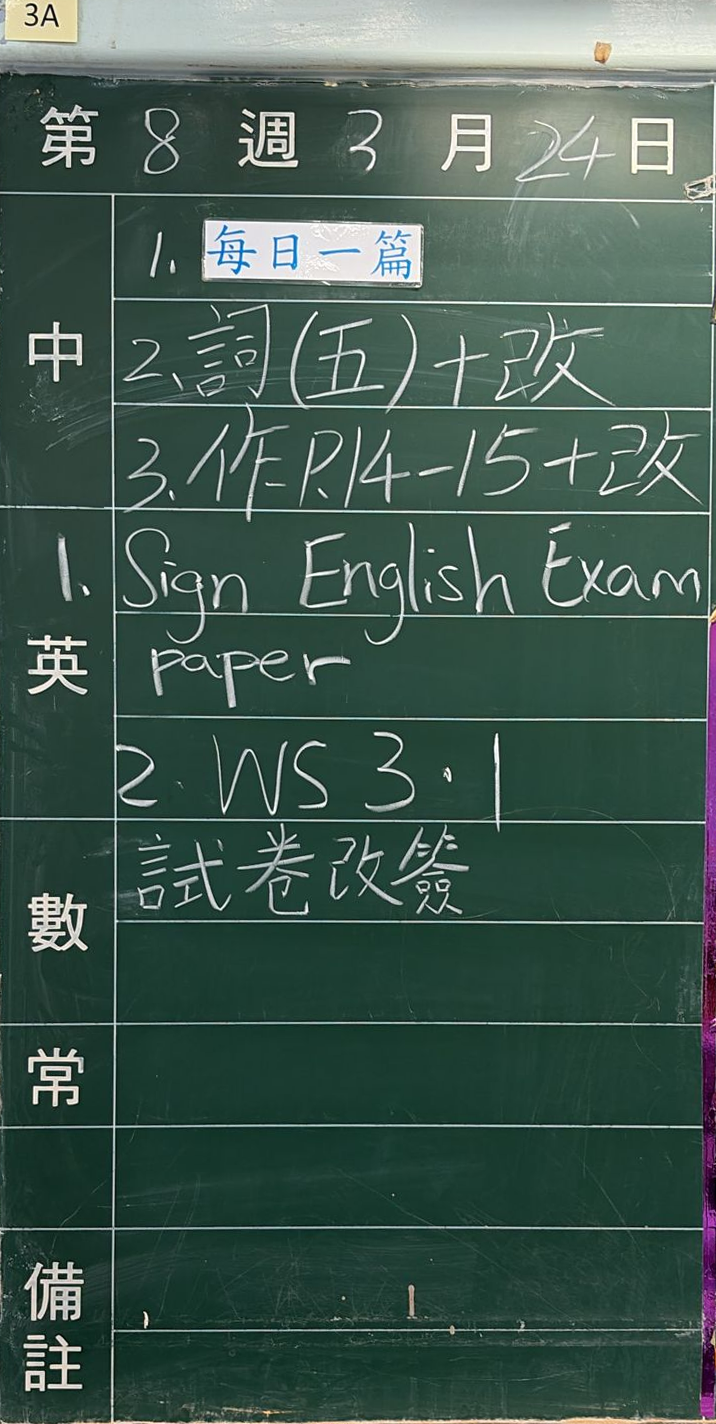 3A
第 8 週 3 月 24 日
中
1. 每日一篇
2. 詞(五)+改
3. 作P.14-15+改
英
1. Sign English Exam
paper
2. WS 3.1
數
試卷改簽
常
備註